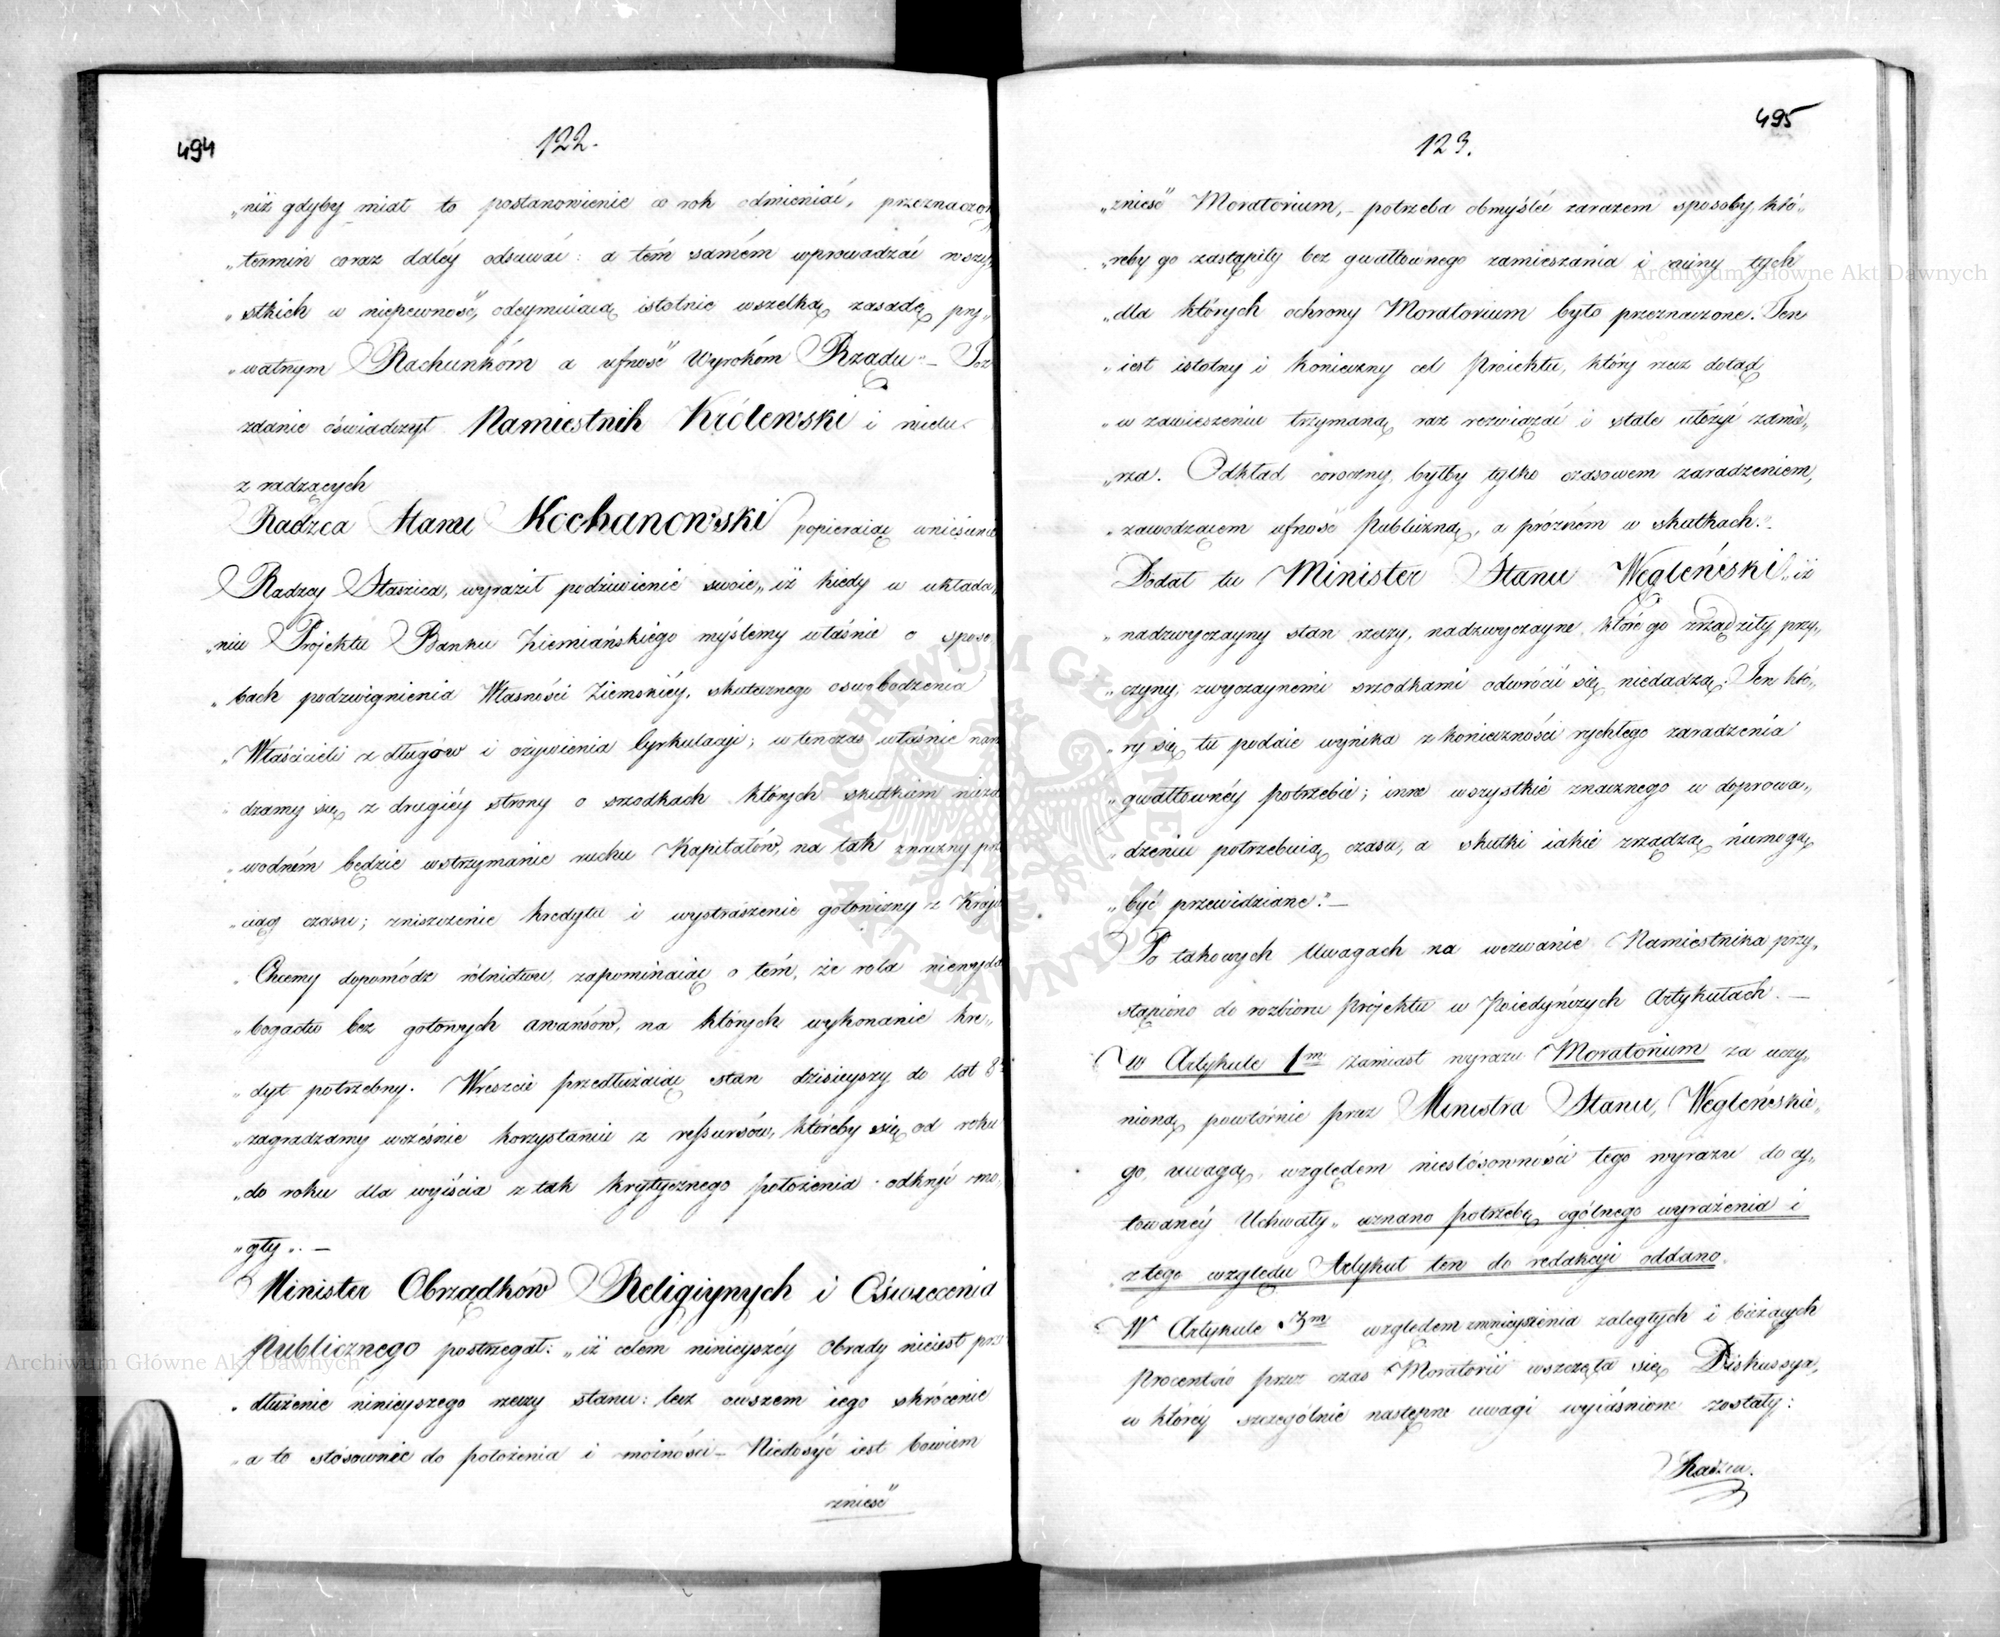 494
122.
„niż gdyby miał to postanowienie co rok odmieniać, przeznaczon
„termin coraz daléy odsuwać: a tém samém wprowadzać wszy„
„stkich w niepewność, odeymuiącą istotnie wszelką zasadę pry„
„watnym Rachunkóm a ufność Wyrokóm Rządu" –
zdanie oświadczył Namiestnik Królewski i wielu
z radzących
Radzca Stanu Kochanowski popieraiąc wniesienie
Radzcy Staszica, wyraził podziwienie swoie „iż kiedy w układa„
„niu Projektu Banku Ziemiańskiego myślemy właśnie o sposo
„bach podzwignienia Własności Ziemskiéy, skutecznego oswobodzenia
„Właścicieli z długów i ożywienia Cyrkulacyi; w tenczas właśnie nara
„dzamy się z drugiéy strony o srzodkach których skutkiem nieza
„wodném będzie wstrzymanie ruchu Kapitałów, na tak znaczny prze
„ciąg czasu; zniszczenie kredytu i wystraszenie gotowizny z Kraju
„Chcemy dopomódz rólnictwu, zapominaiąc o tém, że rola niewyda
„bogactw bez gotowych awansów, na których wykonanie kre„
„dyt potrzebny. Wreszcie przedłużaiąc stan dzisieyszy do lat 8
„zagradzamy wcześnie korzystaniu z ressursów, któreby się od roku
„do roku dla wyiścia z tak krytycznego położenia odkryć mo„
„gły". –
Minister Obrządków Religiynych i Oświecenia
Publicznego postrzegał: „iż celem ninieyszéy Obrady nieiest prze
„dłużenie ninieyszego rzeczy stanu: lecz owszem iego skrócenie
„a to stósownie do położenia i możności – Niedosyć iest bowiem
znieść
495
123.
„znieść Moratorium, – potrzeba obmyślić zarazem sposoby, któ„
„reby go zastąpiły bez gwałtownego zamieszania i ruiny tych
„dla których ochrony Moratorium było przeznaczone. Ten
„iest istotny i konieczny cel Proiektu, który rzecz dotąd
„w zawieszeniu trzymaną, raz rozwiązać i stale ułożyć zamie„
„rza. Odkład coroczny, byłby tylko czasowem zaradzeniem,
„zawodzącem ufność Publiczną, a próżném w skutkach." –
Dodał tu Minister Stanu Węgleński „iż
„nadzwyczayny stan rzeczy, nadzwyczayne które go zrządziły przy„
„czyny, zwyczaynemi srzodkami odwrócić się niedadzą. Ten któ„
„ry się tu podaie wynika z konieczności rychłego zaradzenia
„gwałtownéy potrzebie; inne wszystkie znacznego w doprowa„
„dzeniu potrzebuią czasu, a skutki iakie zrządzą niemogą
„być przewidziane." –
Po takowych Uwagach na wezwanie Namiestnika przy„
stąpiono do rozbioru Projektu w Poiedyńczych Artykułach. –
W Artykule 1m zamiast wyrazu Moratorium za uczy„
nioną powtórnie przez Ministra Stanu, Węgleńskie„
go, uwagą, względem niestósowności tego wyrazu do cy„
towanéy Uchwały, uznano potrzebę ogólnego wyrażenia i
z tego względu Artykuł ten do redakcyi oddano.
W Artykule 3m względem zmnieyszenia zaległych i bieżących
Procentów przez czas Moratorii wszczęła się Diskussya,
w któréy szczególnie następne uwagi wyiaśnione zostały:
Radzca.